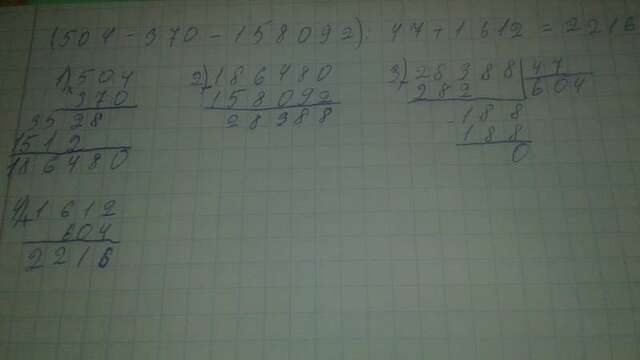 (504 · 370 - 158092) : 47 + 1612 = 2216
1) 504
× 370
3528
1512
186480
2) 186480
- 158092
28388
3) 28388 | 47
- 282 | 604
- 188
188
0
4) 1612
+ 604
2216